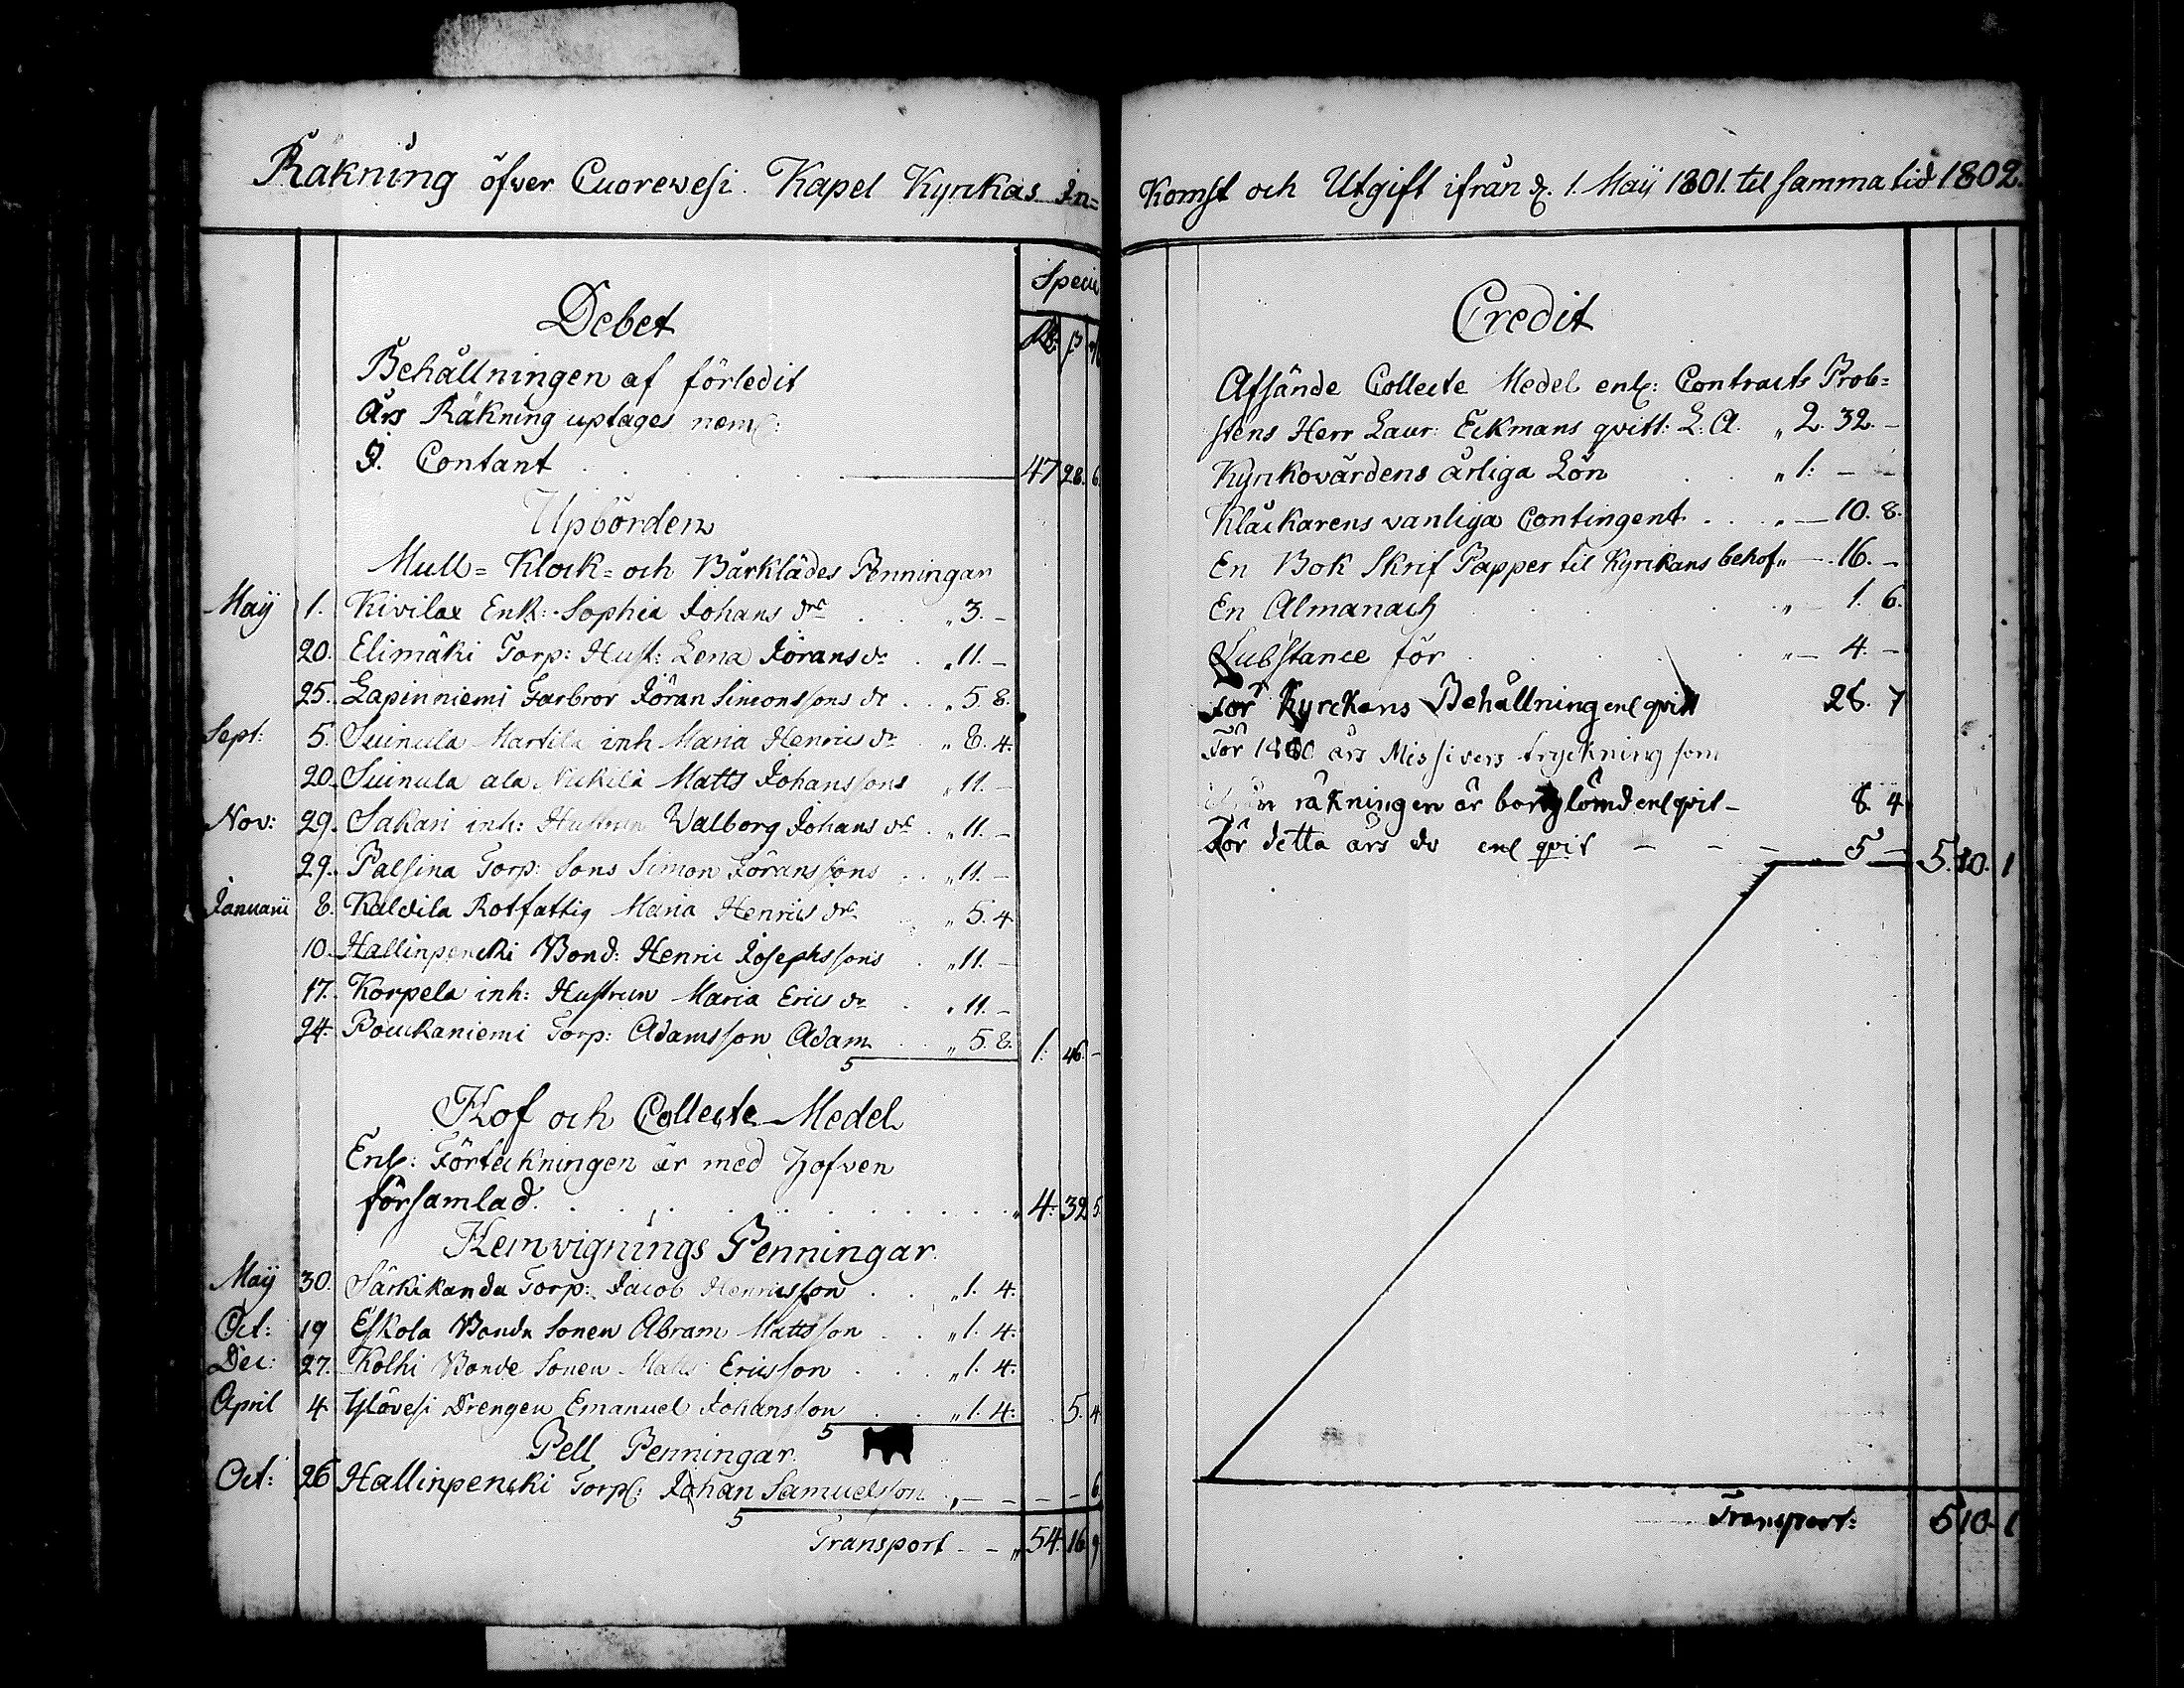 Räkning öfver Cuorevesi Kapel Kyrckas In=
Specie
Rd. ß
Debet
Behållningen af förledit
Års Räkning uptages neml:
I. Contant . . . 47 28. 6.
Upbörden
Mull= Klock= och Bårklädes Penningar
Maij 1. Kivilax Enk: Sophia Johans dr . . „ 3. –
20. Elimäki Torp: Hust: Lena Jörans dr . „ 11. –
25. Lapinniemi Farbror Jöran Simonssons dr . . „ 5. 8.
Sept: 5. Suinula Martila inh Maria Henrics dr . „ 8. 4.
20. Suinula ala Nickilä Matts Johanssons „ 11. –
Nov: 29. Sakari inh: Hustrun Walborg Johans dr . „ 11. –
29. Palsina Torp: Sons Simon Jöranssons . . „ 11. –
Januarii 8. Kaldila Rotfattig Maria Henrics dr „ 5. 4
10. Hallinpencki Bond: Henric Josephssons . „ 11. –
17. Korpela inh: Hustrun Maria Erics dr . „ 11. –
24. Pouckaniemi Torp: Adamsson Adam . . „ 5. 8. 1: 46. –
Hof och Collecte Medel
Enl: Förteckningen är med Hofven
församlad. . . . . . . „ 4: 32 5.
Hemvignings Penningar.
Maij 30. Särkikanda Torp: Jacob Henricsson . . „ 1. 4.
Oct: 19 Eskola Bonde Sonen Abram Mattsson . . „ 1. 4.
Dec: 27. Kolhi Bonde Sonen Matts Ericsson . . . „ 1. 4.
April 4 Ylövesi Drengen Emanuel Johansson . . „ 1. 4. 5. 4
Pell Penningar.
Oct: 26 Hallinpencki Torp: Johan Samuelsson . „ – – – – 6
Transport – – „ 54. 16 9
Komst och Utgift ifrån d. 1. Maij 1801. til samma tid 1802.
Credit
Afsände Collecte Medel enl: Contracts Prob=
stens Herr Laur: Eckmans qvitt: L: A. „ 2. 32. –
Kyrkovärdens årliga Lön . . „ 1: – –
Klåckarens vanliga Contingent . . . „ — 10. 8.
En Bok Skrif Papper til Kyrckans behof „ — 16. –
En Almanach . . . „ — 1. 6.
Substance för . . . „ — 4. –
För Kyrckans Behållning enl qvitt 28. 7
För 1800 års Missivers tryckning som
räkningen är bortglömd enl qvit – 8. 4
För detta års do enl qvit – – – 5 – 5. 10. 1
Transport: 5 10. 1